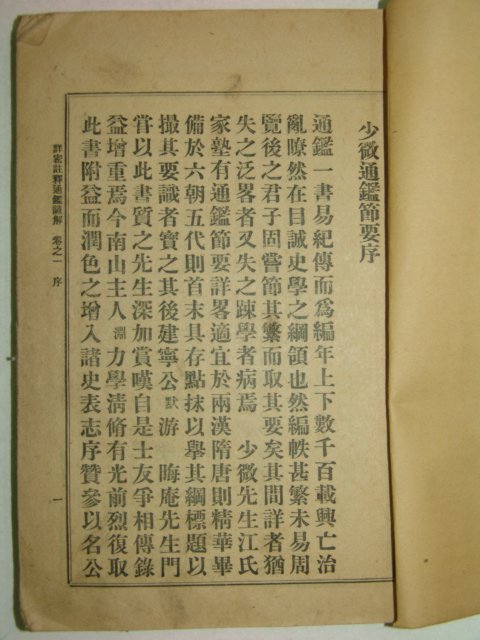 少微通鑑節要序
通鑑一書易紀傳而爲編年上下數千百載興亡治
亂瞭然在目誠史學之綱領也然編帙甚繁未易周
覽後之君子固嘗節其繁而取其要矣其間詳者猶
失之泛畧者又失之踈學者病焉 少微先生江氏
家塾有通鑑節要詳畧適宜於兩漢隋唐則精華畢
備於六朝五代則首末具存點抹以舉其綱標題以
撮其要識者寶之其後建寧公默游 晦庵先生門
嘗以此書質之先生深加賞嘆自是士友爭相傳錄
益增重焉今南山主人淵力學淸脩有光前烈復取
此書附益而潤色之增入諸史表志序贊參以名公
詳密註釋通鑑諺解 卷之一 序 一